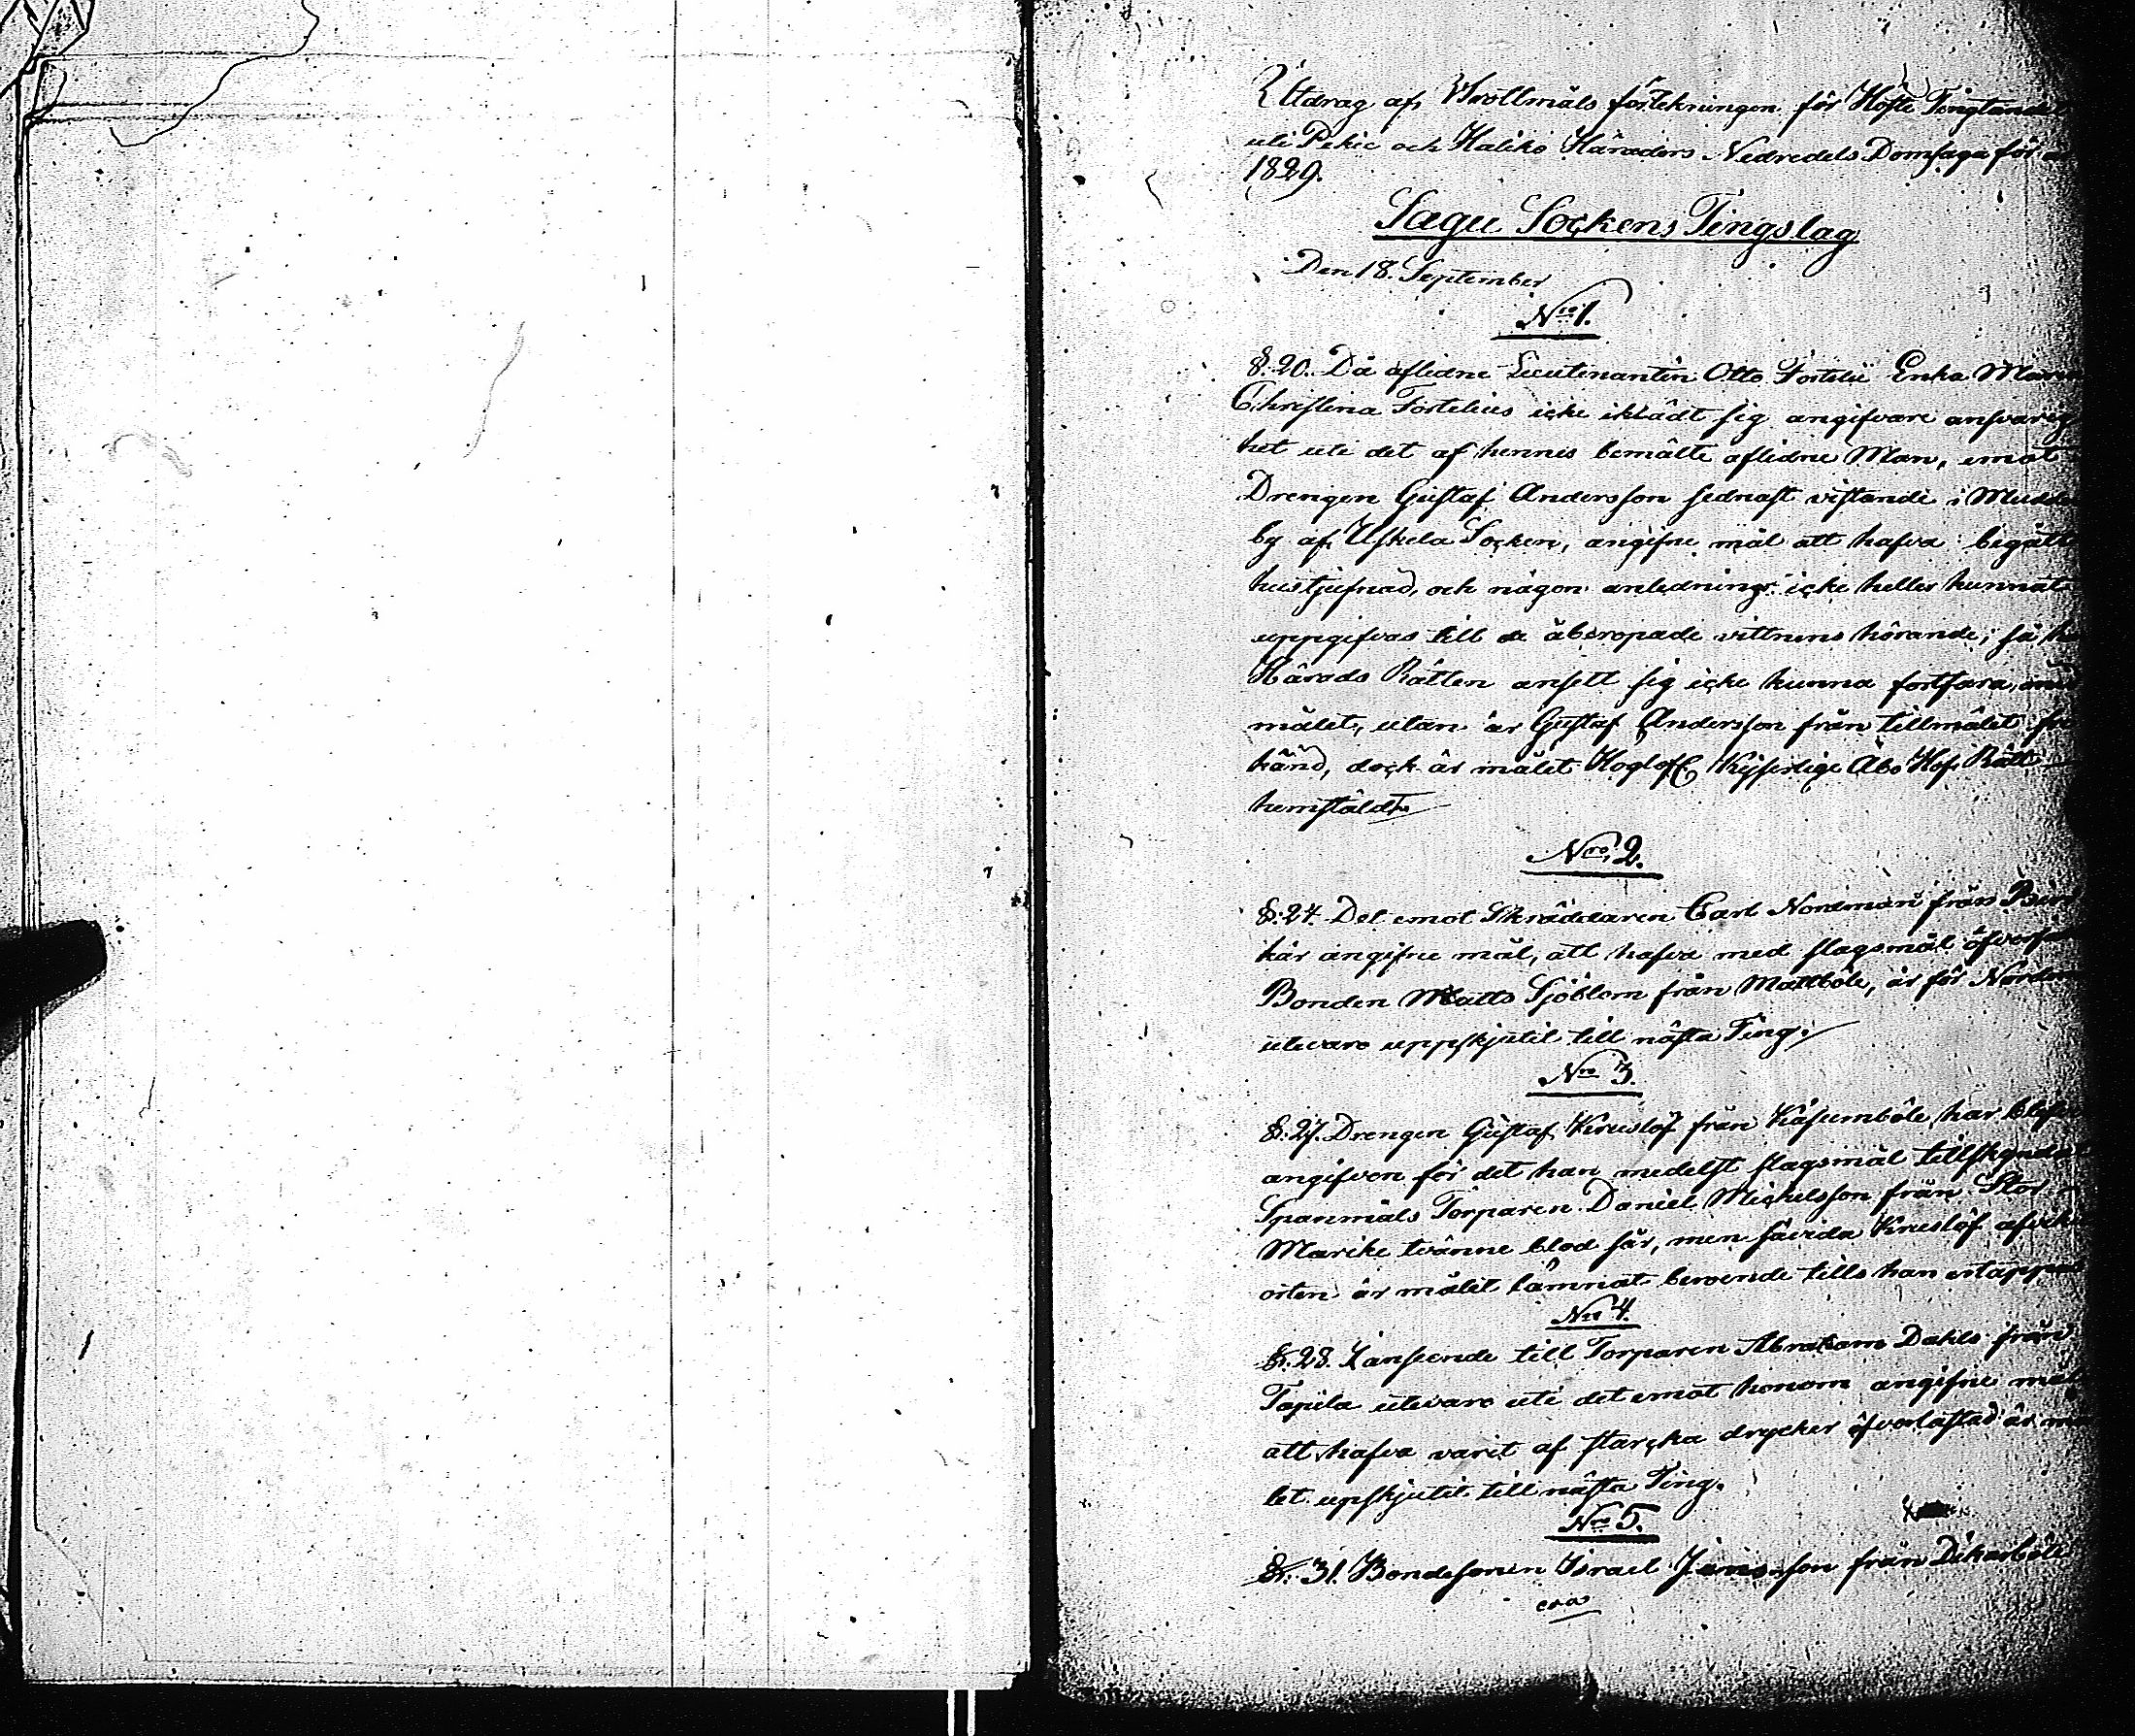 Utdrag af Brottmåls förtekningen för Höste Tingtinde
uti Pikie och Haliko Häraders Nedredels Domsaga för
1829.
Sagu Sockens Tingslag
Den 18. September
Nro 1.
§. 20. Då aflidne Lieutenanten Otto Fortelii Enka Maria
Christina Fortelius icke iklädt sig angifvare ansvarig
het uti det af hennes bemälte aflidne Man, emot
Drengen Gustaf Andersson sednast vistande i
by af Uskela Socken, angifne mål att hafva begått
hustjufnad, och någon anledning icke heller kunnat
uppgifvas till de åberopade vittnens hörande; så
Härads Rätten ansett sig icke kunna fortfara
målet, utan är Gustaf Andersson från tillmålet
känd, dock är målet Höglofl Kejserlige Åbo Hof Rätt
hemstäldt.
Nro 2.
§. 24. Det emot Skräddaren Carl Nordman från
kär angifne mål, att hafva med slagsmål
Bonden Matts Sjöblom från Mattböle, är för
utevaro uppskjutit till nästa Ting.
Nro 3.
§. 27. Drengen Gustaf Kruslöf från Kåsumböle har
angifven för det han medelst slagsmål
Spanmåls Torparen Daniel Michelsson från Stor
Marike tvänne blod sår, men såvida Kruslöf
orten är målet lämnat beroende tills han
Nro 4.
§. 28. I anseende till Torparen Abraham Dahls från
Tapila utevaro uti det emot honom angifne mål
att hafva varit af starcka drycker öfverlastad är
let upskjutit till nästa Ting.
Nro 5.
§. 31. Bondesonen Israel Jansson från